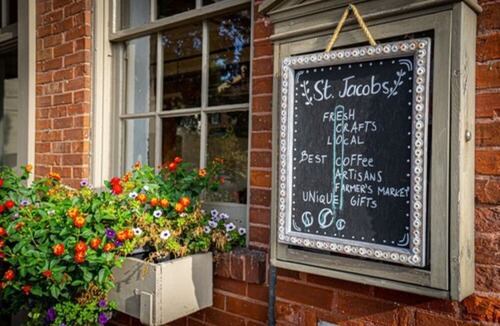 St. Jacobs
FRESH
CRAFTS
LOCAL
BEST COFFEE
ARTISANS
FARMER'S MARKET
UNIQUE GIFTS